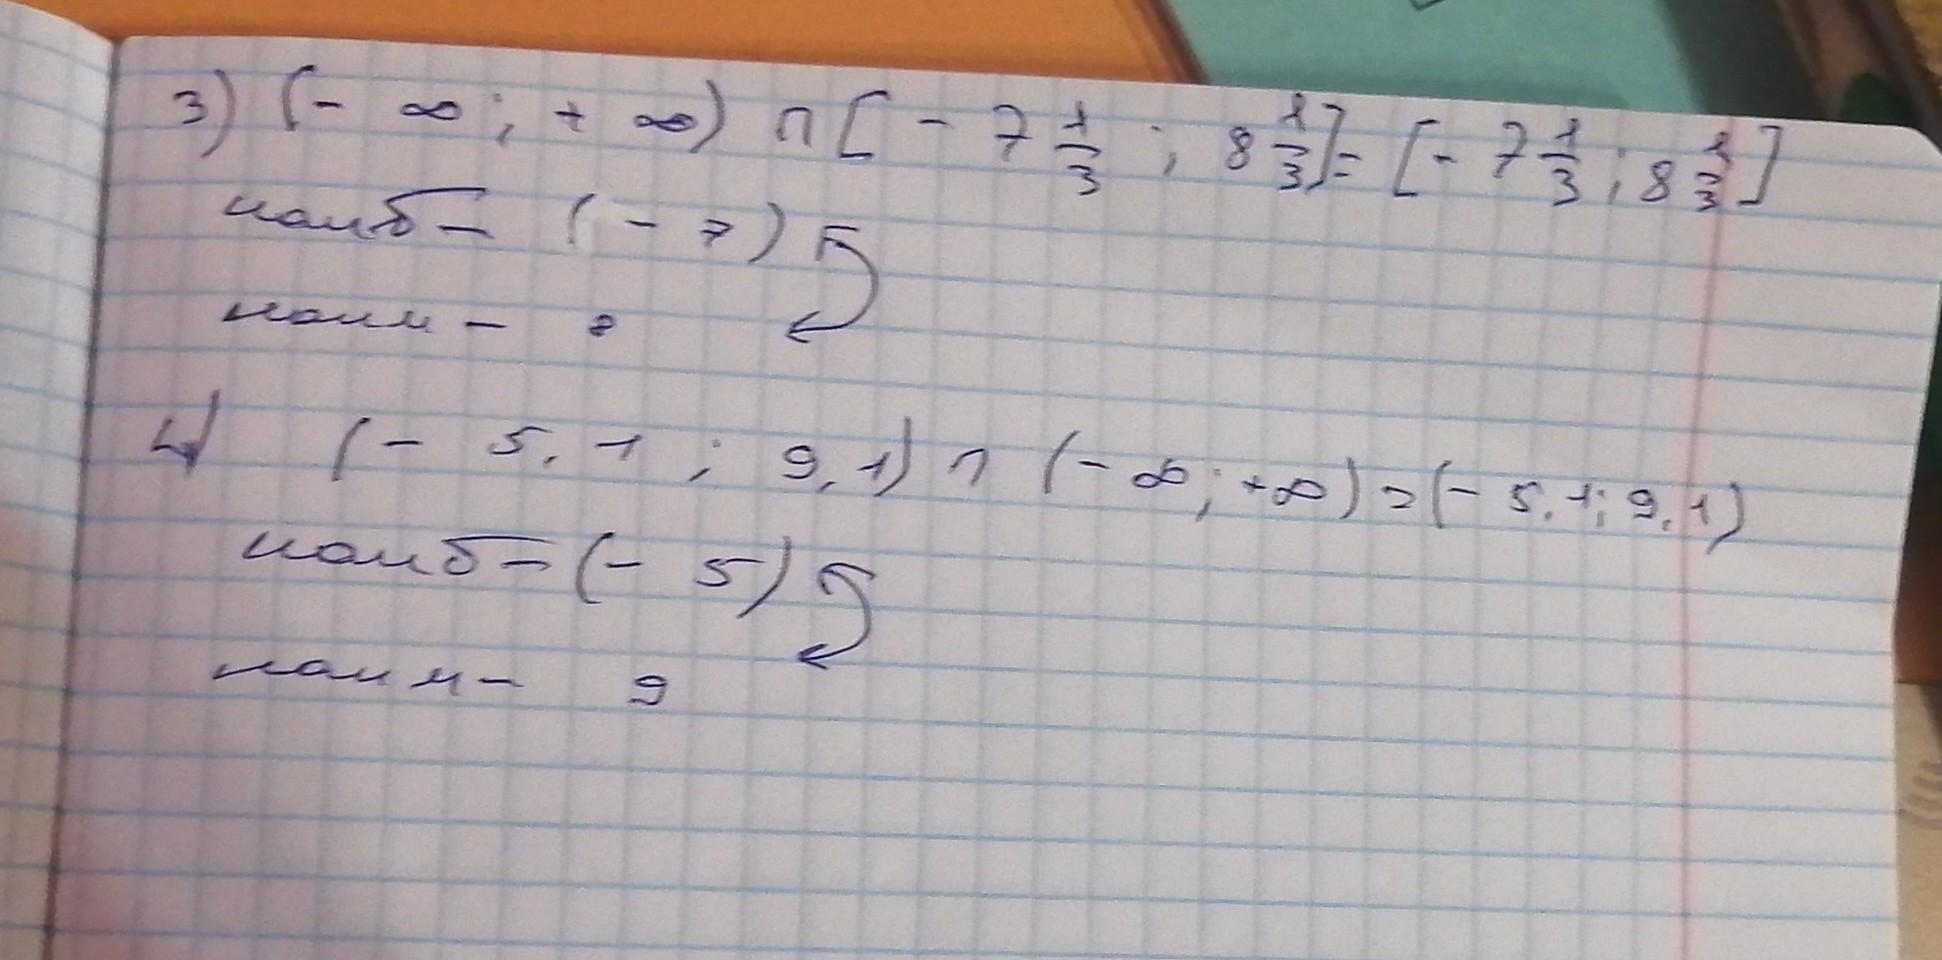 3) (- ∞ ; + ∞) ∩ [- 7 1/3 ; 8 1/3] = [- 7 1/3 ; 8 1/3]
наиб - (- 7)
наим - 8
4) (- 5,1 ; 9,1) ∩ (- ∞ ; +∞) = (- 5,1; 9,1)
наиб - (- 5)
наим - 9